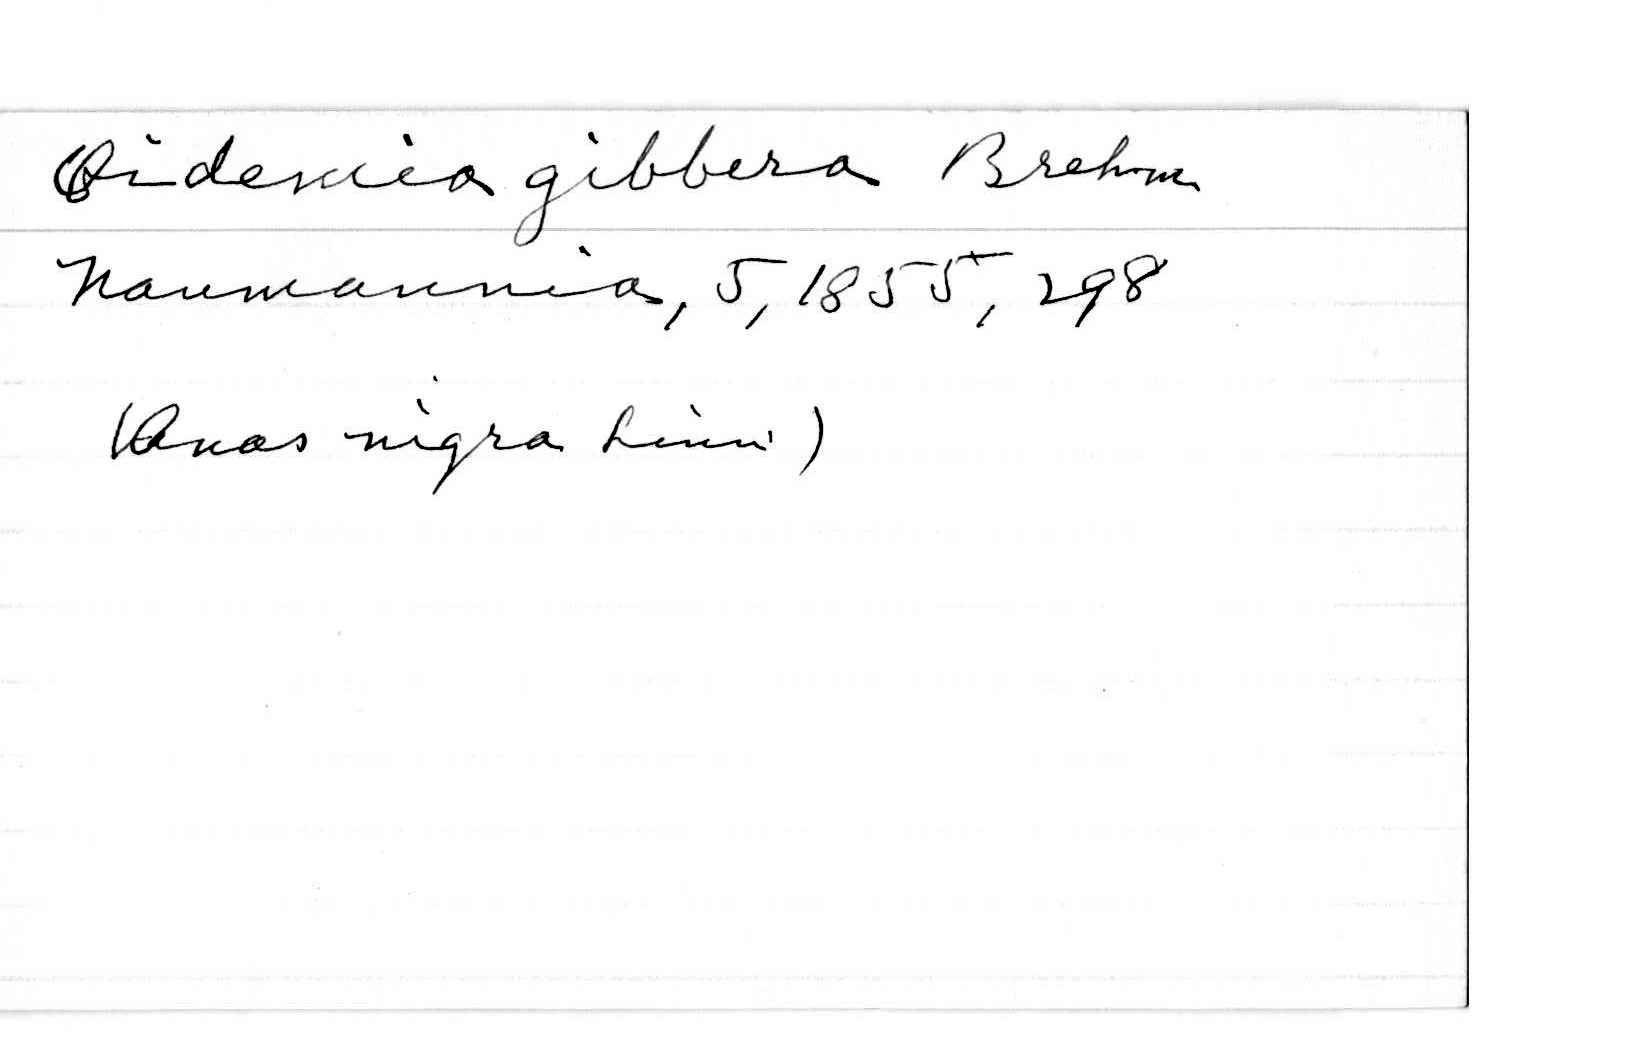 Oidemia gibbera Brehm
Naumannia, 5, 1855, 298
(Anas nigra Linn.)